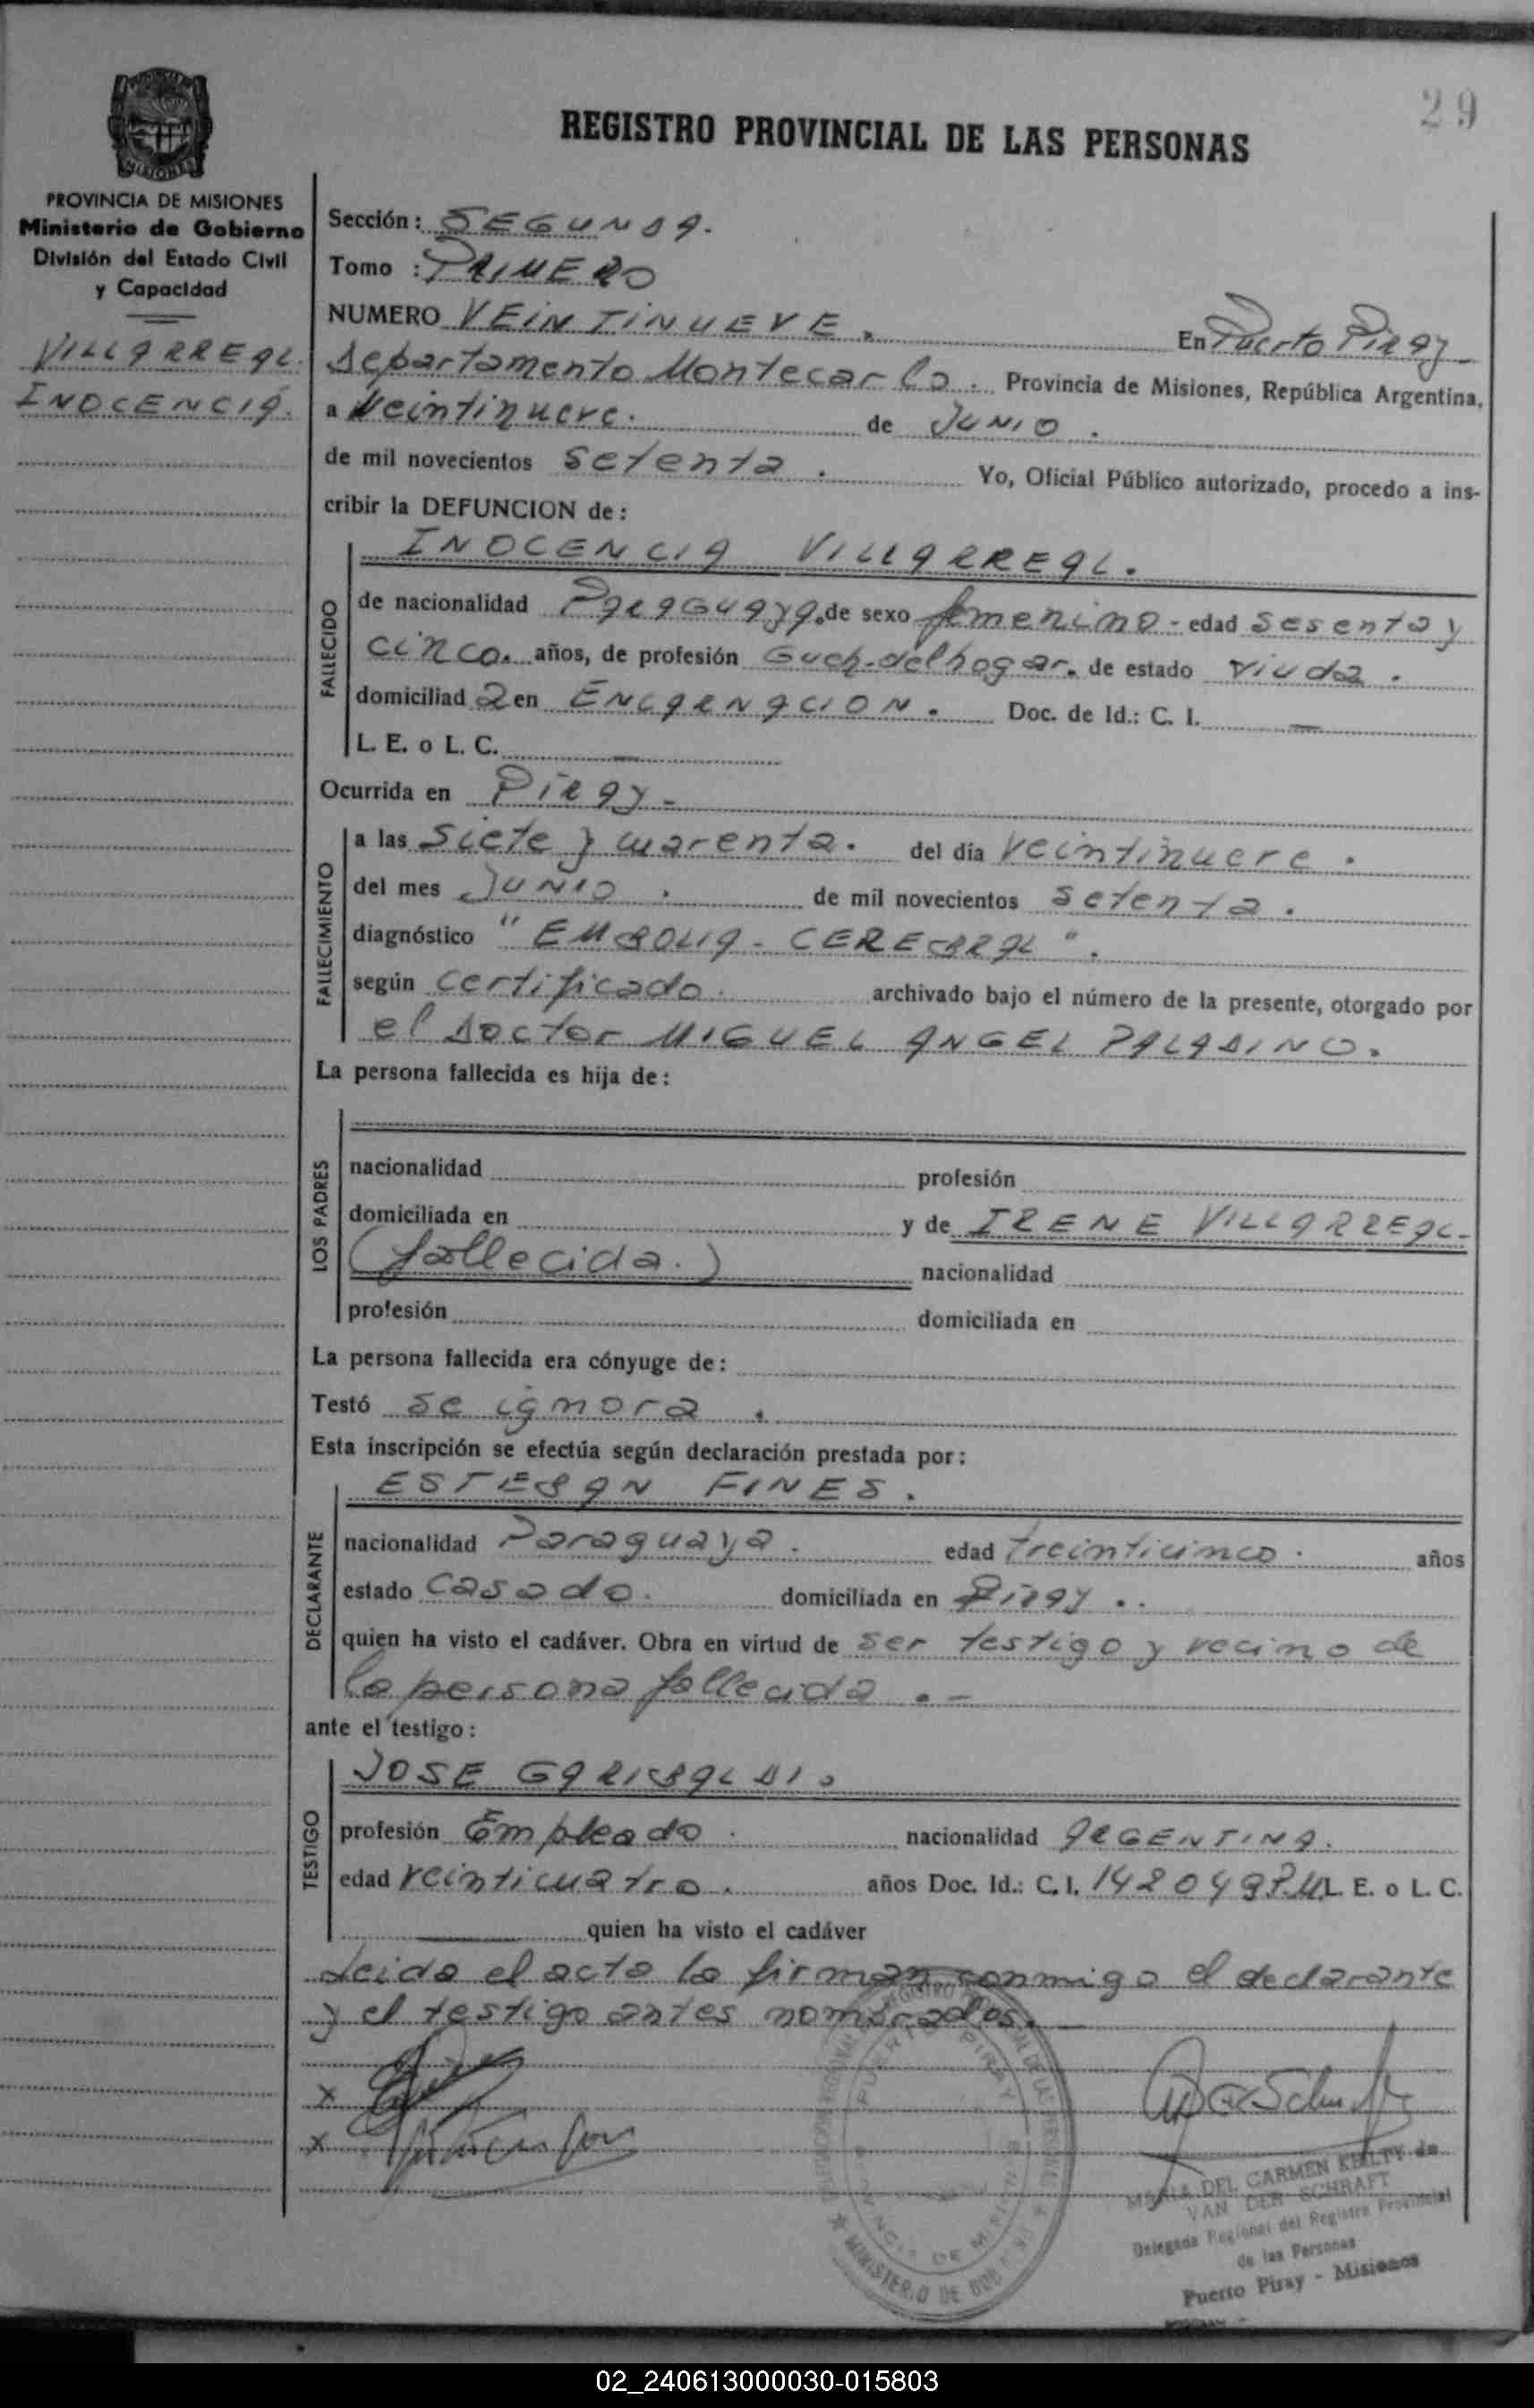 29
REGISTRO PROVINCIAL DE LAS PERSONAS
MISIONES
PROVINCIA DE MISIONES
Ministerio de Gobierno
División del Estado Civil
y Capacidad
VILLARREAL.
INOCENCIA.
Sección: SEGUNDA.
Tomo : PRIMERO
NUMERO VEINTINUEVE. En Puerto Piray
Departamento Montecarlo. Provincia de Misiones, República Argentina,
a Veintinueve. de JUNIO.
de mil novecientos setenta. Yo, Oficial Público autorizado, procedo a ins-
cribir la DEFUNCION de:
INOCENCIA VILLARREAL.
FALLECIDO
de nacionalidad PARAGUAYA. de sexo femenino - edad sesenta y
cinco. años, de profesión Gueh. del hogar. de estado viuda.
domiciliad a en ENCARNACION. Doc. de Id.: C. I. —
L. E. o L. C. —
Ocurrida en PIRAY-
FALLECIMIENTO
a las Siete y cuarenta. del día veintinueve.
del mes JUNIO. de mil novecientos setenta.
diagnóstico "EMBOLIA - CEREBRAL".
según certificado. archivado bajo el número de la presente, otorgado por
el Doctor MIGUEL ANGEL PALADINO.
La persona fallecida es hija de:
LOS PADRES
nacionalidad profesión
domiciliada en y de IRENE VILLARREAL-
(fallecida.) nacionalidad
profesión domiciliada en
La persona fallecida era cónyuge de:
Testó se ignora.
Esta inscripción se efectúa según declaración prestada por:
ESTEBAN FINES.
DECLARANTE
nacionalidad Paraguaya. edad treinticinco. años
estado casado. domiciliada en Piray..
quien ha visto el cadáver. Obra en virtud de ser testigo y vecino de
la persona fallecida.-
ante el testigo:
JOSE GARIBALDI.
TESTIGO
profesión Empleado. nacionalidad ARGENTINA.
edad veinticuatro. años Doc. Id.: C. I. 142049 P.M. L. E. o L. C.
— quien ha visto el cadáver
Leida el acta la firman conmigo el declarante
y el testigo antes nombrados.—
x
x
MARIA DEL CARMEN KEILTY de
VAN DER SCHRAFT
Delegada Regional del Registro Provincial
de las Personas
Puerto Piray - Misiones
MINISTERIO DE GOB
02_240613000030-015803